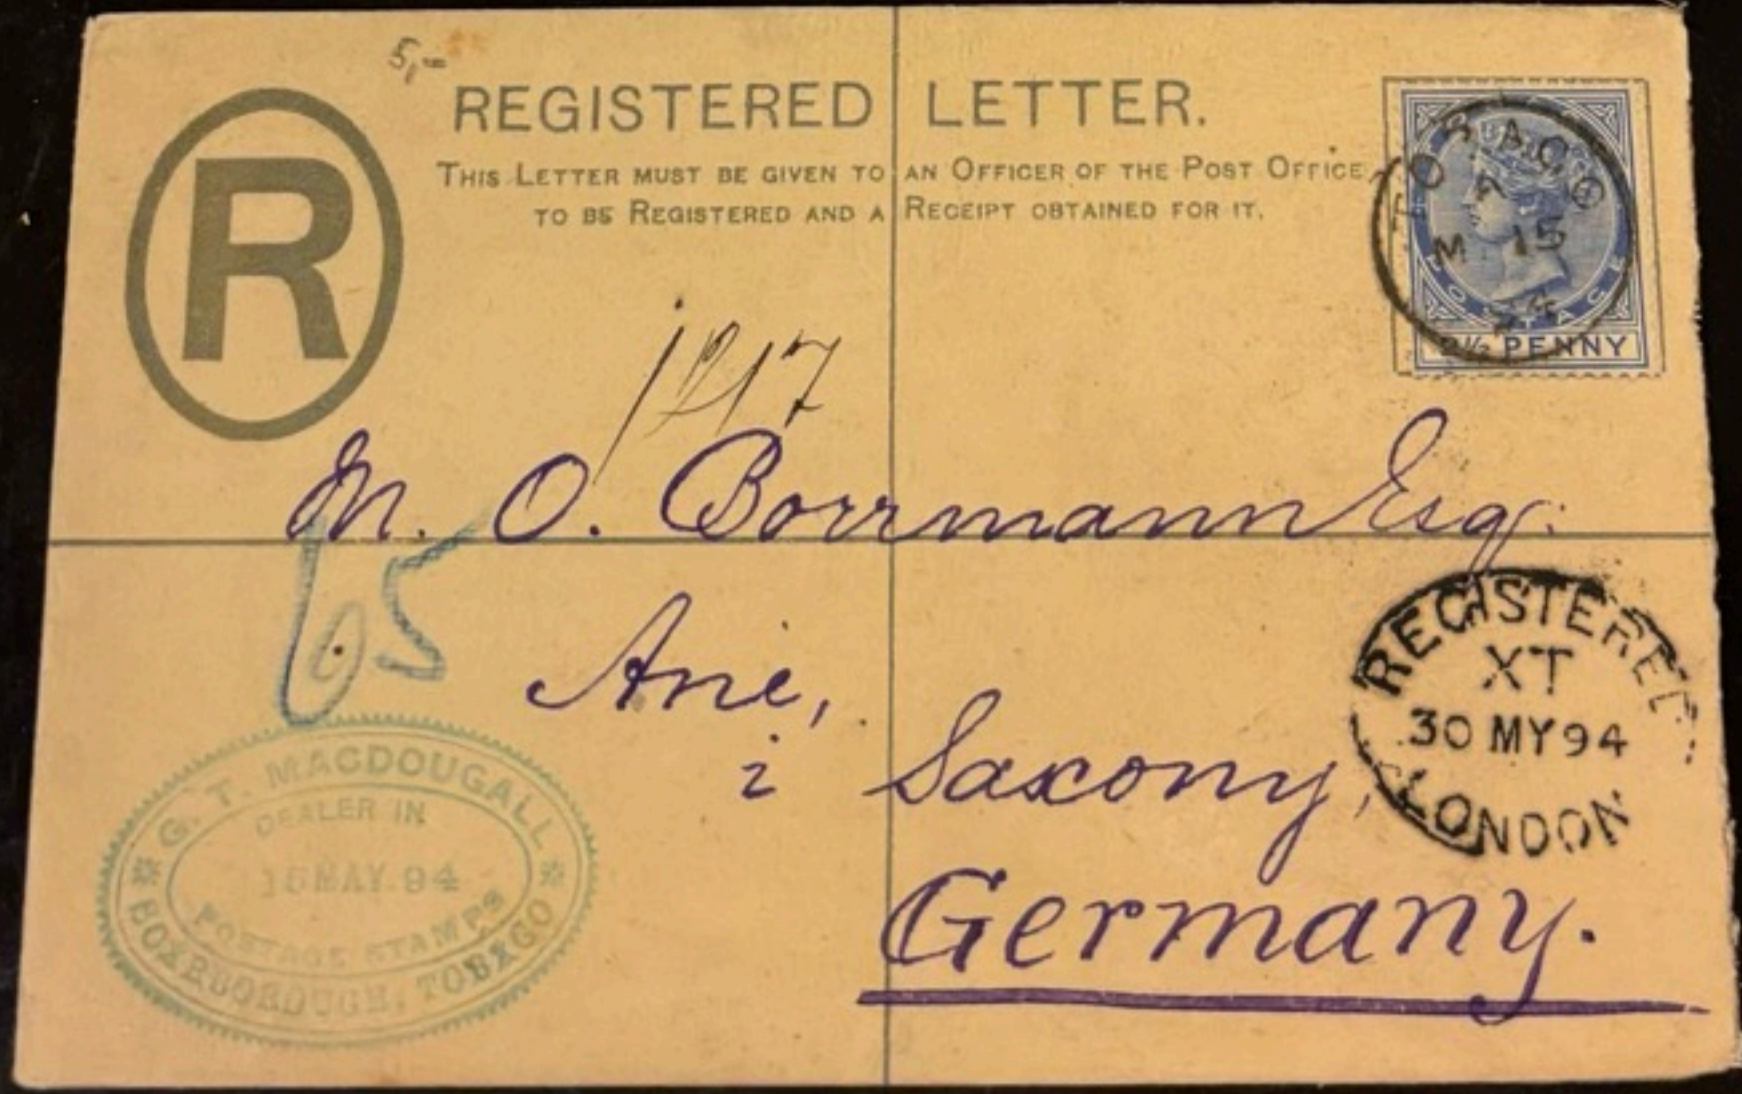 5,—
REGISTERED LETTER.
THIS LETTER MUST BE GIVEN TO AN OFFICER OF THE POST OFFICE
TO BE REGISTERED AND A RECEIPT OBTAINED FOR IT.
R
TOBAGO
A
M 15
94
TOBAGO
POSTAGE
2½ PENNY
M. O. Borrmann Esq:
65
Aue,
i Saxony,
Germany.
REGISTERED
XT
30 MY 94
LONDON
G. T. MACDOUGALL
DEALER IN
15 MAY. 94
POSTAGE STAMPS
ROXBOROUGH, TOBAGO